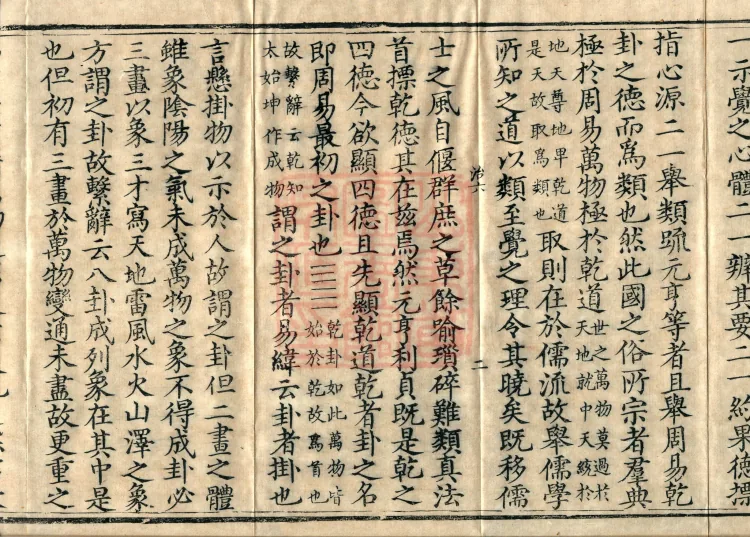 一示覺之心體二一辨其要二一約果德標
指心源二一舉類䟽元亨等者且舉周易乾
卦之德而爲類也然此國之俗所宗者羣典
極於周易萬物極於乾道世之萬物莫過於天地就中天㝡於
地天尊地卑乾道是天故取爲類也取則在於儒流故舉儒學
所知之道以類至覺之理令其曉矣既移儒
士之風自偃群庶之草餘喻瑣碎難類真法
首摽乾德其在茲焉然元亨利貞既是乾之
四德今欲顯四德且先顯乾道乾者卦之名
即周易最初之卦也☰☰乾卦如此萬物皆始於乾故爲首也
故繫辭云乾知太始坤作成物謂之卦者易緯云卦者掛也
言懸掛物以示於人故謂之卦但二畫之體
雖象陰陽之氣未成萬物之象不得成卦必
三畫以象三才寫天地雷風水火山澤之象
方謂之卦故繫辭云八卦成列象在其中是
也但初有三畫於萬物變通未盡故更重之
治六 二